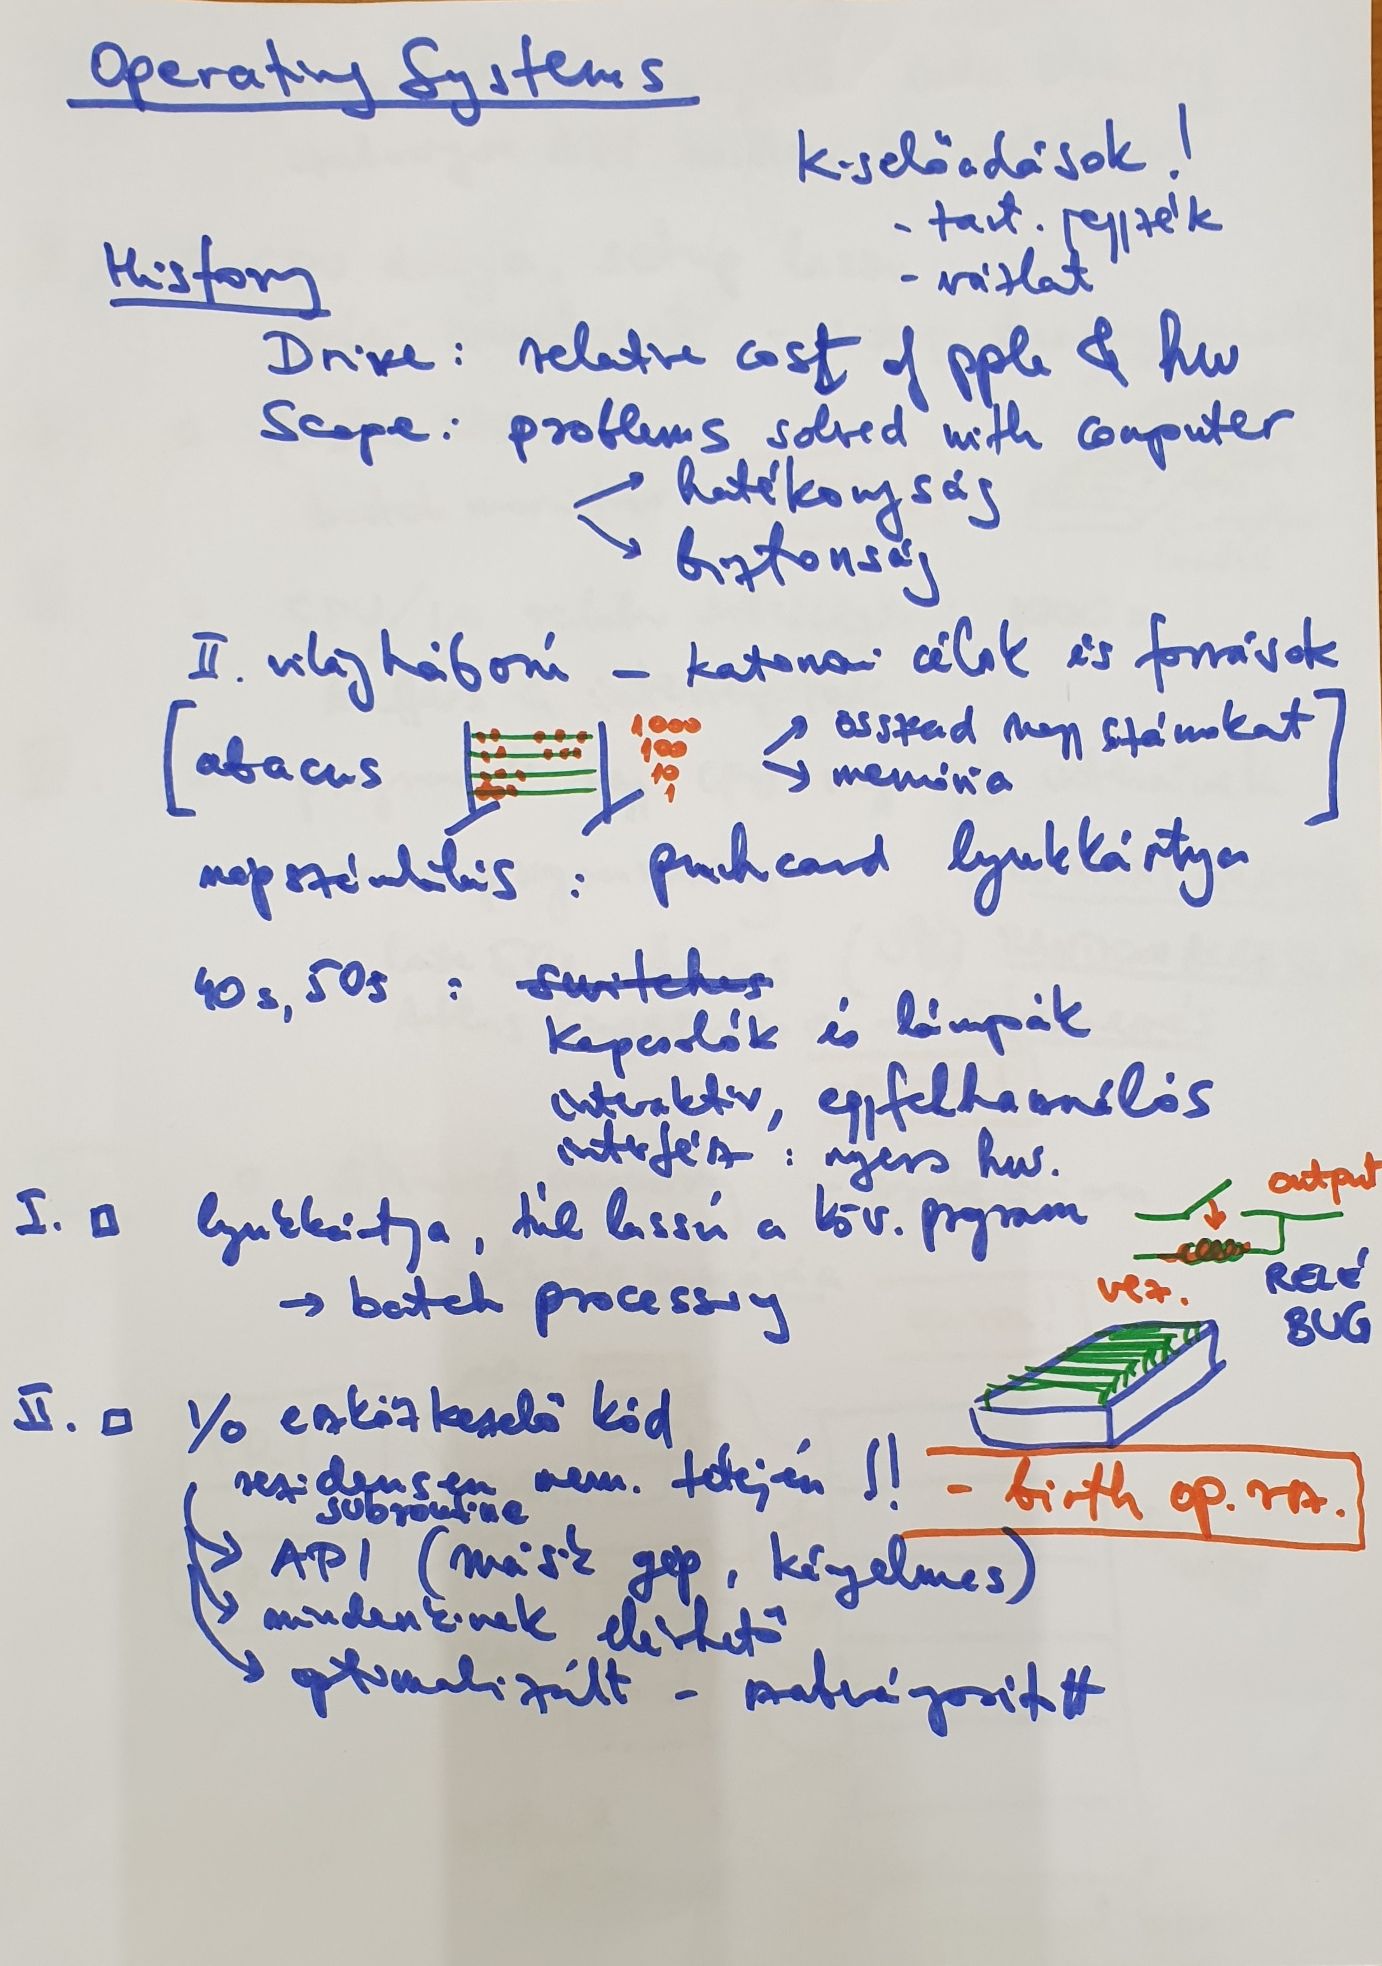 Operating Systems
Kiselőadások!
- tart. jegyzék
- vázlat
History
Drive: relative cost of pple & hw
Scope: problems solved with computer
hatékonyság
biztonság
II. világháború - katonai célok és források
[abacus 1000 összead nagy számokat]
100
10 memória
1
népszámlálás: punchcard lyukkártya
40s, 50s: switches
kapcsolók és lámpák
interaktív, egyfelhasználós
interfész: nyers hw.
output
I. lyukkártya, túl lassú a köv. program
→ batch processing
vez.
RELÉ
BUG
II. I/O eszközkezelő kód
rezidensen mem. tetején !! - birth op. rsz.
subroutine
API (másik gép, kényelmes)
mindenkinek elérhető
optimalizált - szabványosított